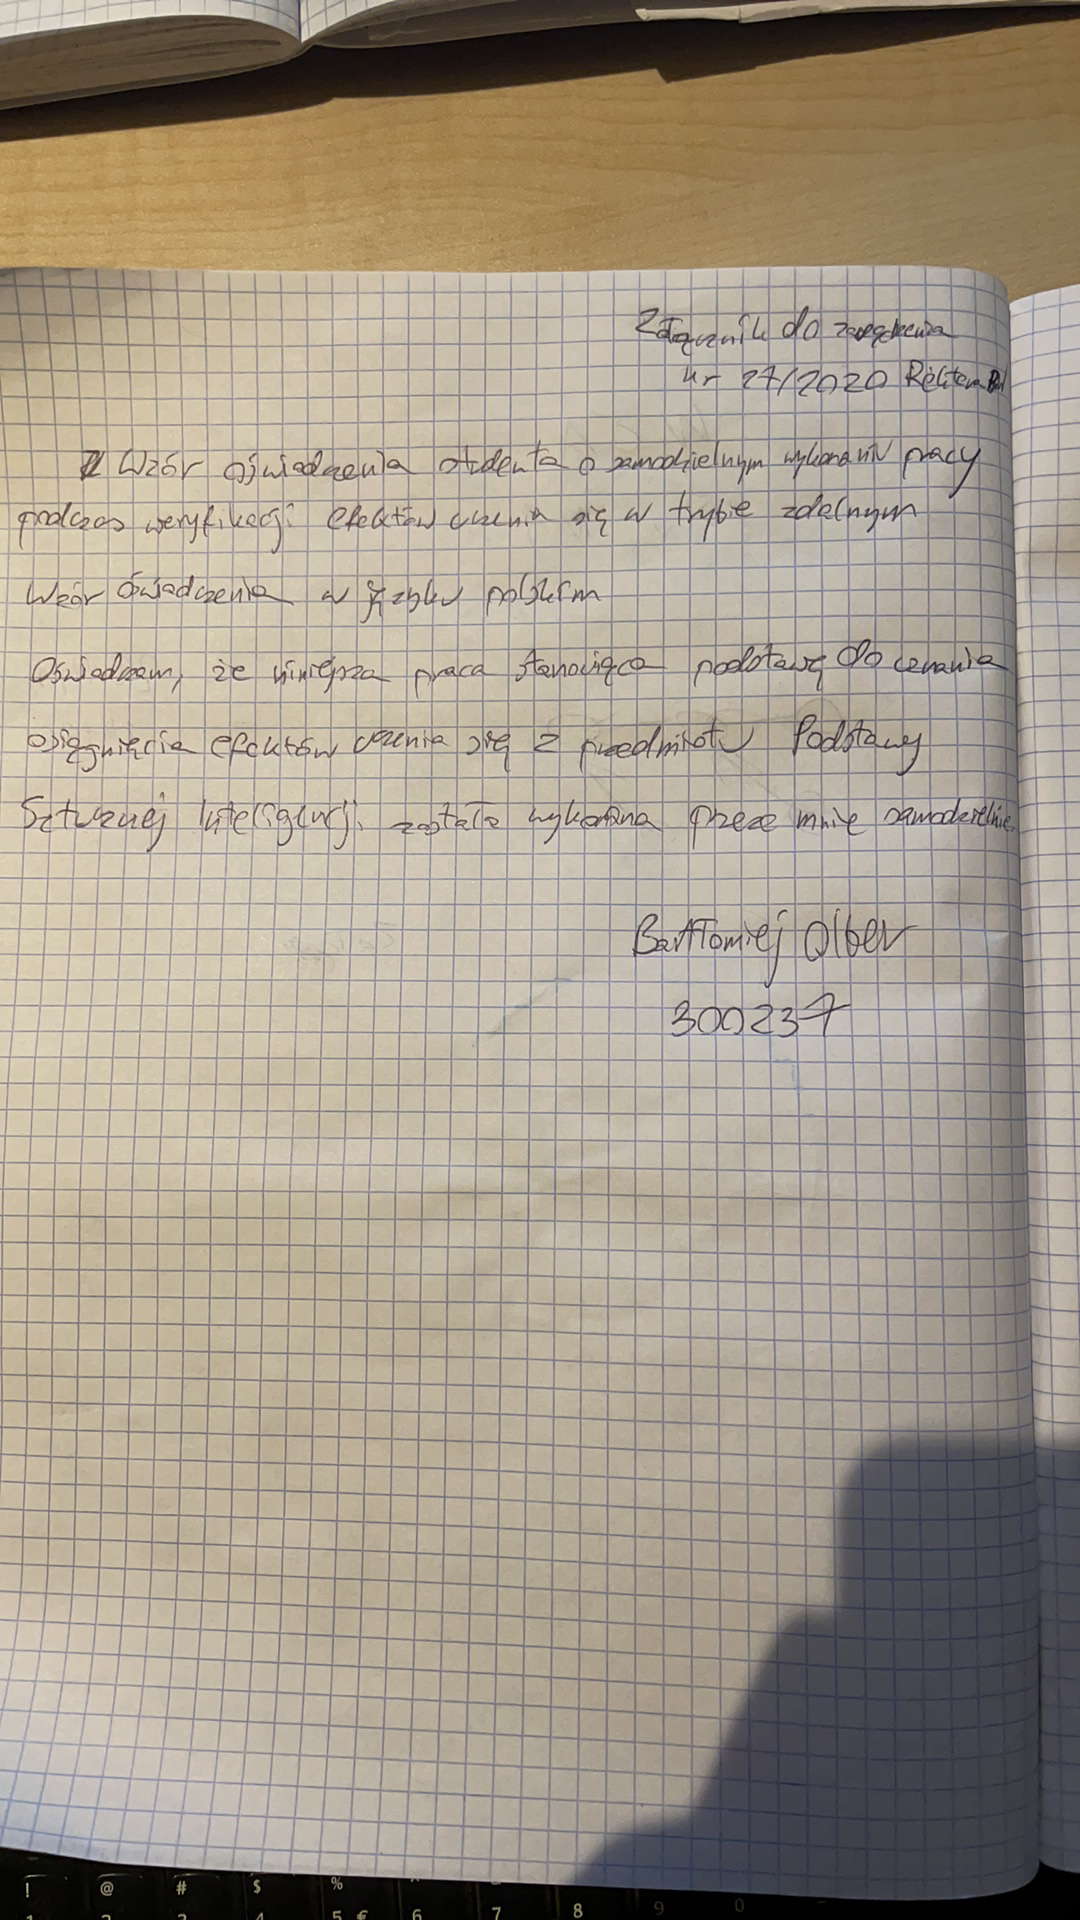 Załącznik do zarządzenia
nr 27/2020 Rektora
Wzór oświadczenia studenta o samodzielnym wykonaniu pracy
podczas weryfikacji efektów uczenia się w trybie zdalnym
Wzór oświadczenia w języku polskim
Oświadczam, że niniejsza praca stanowiąca podstawę do uznania
osiągnięcia efektów uczenia się z przedmiotu Podstawy
Sztucznej Inteligencji została wykonana przeze mnie samodzielnie.
Bartłomiej Olber
300237
! @ # $ %
5 € 6 7 8 9 0